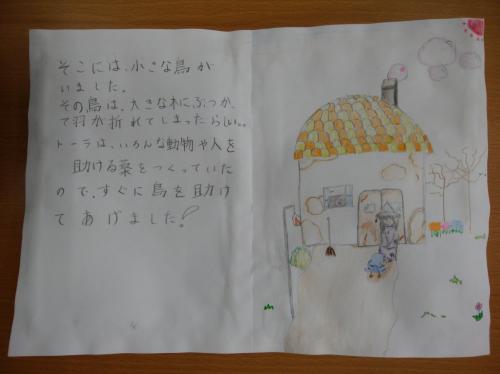 そこには、小さな鳥が
いました。
その鳥は、大きな木にぶつかっ
て羽が折れてしまったらしい。
トーラは、いろんな動物や人を
助ける薬をつくっていた
ので、すぐに鳥を助け
てあげました!